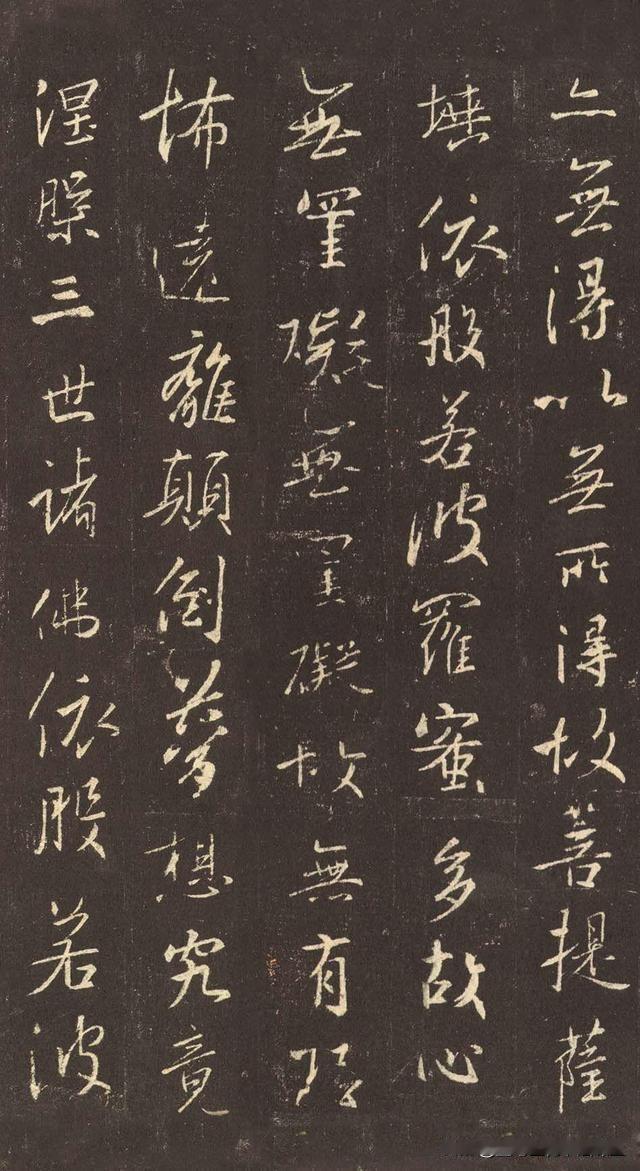 亦無得以無所得故菩提薩
埵依般若波羅蜜多故心
無罣礙無罣礙故無有恐
怖遠離顛倒夢想究竟
涅槃三世諸佛依般若波